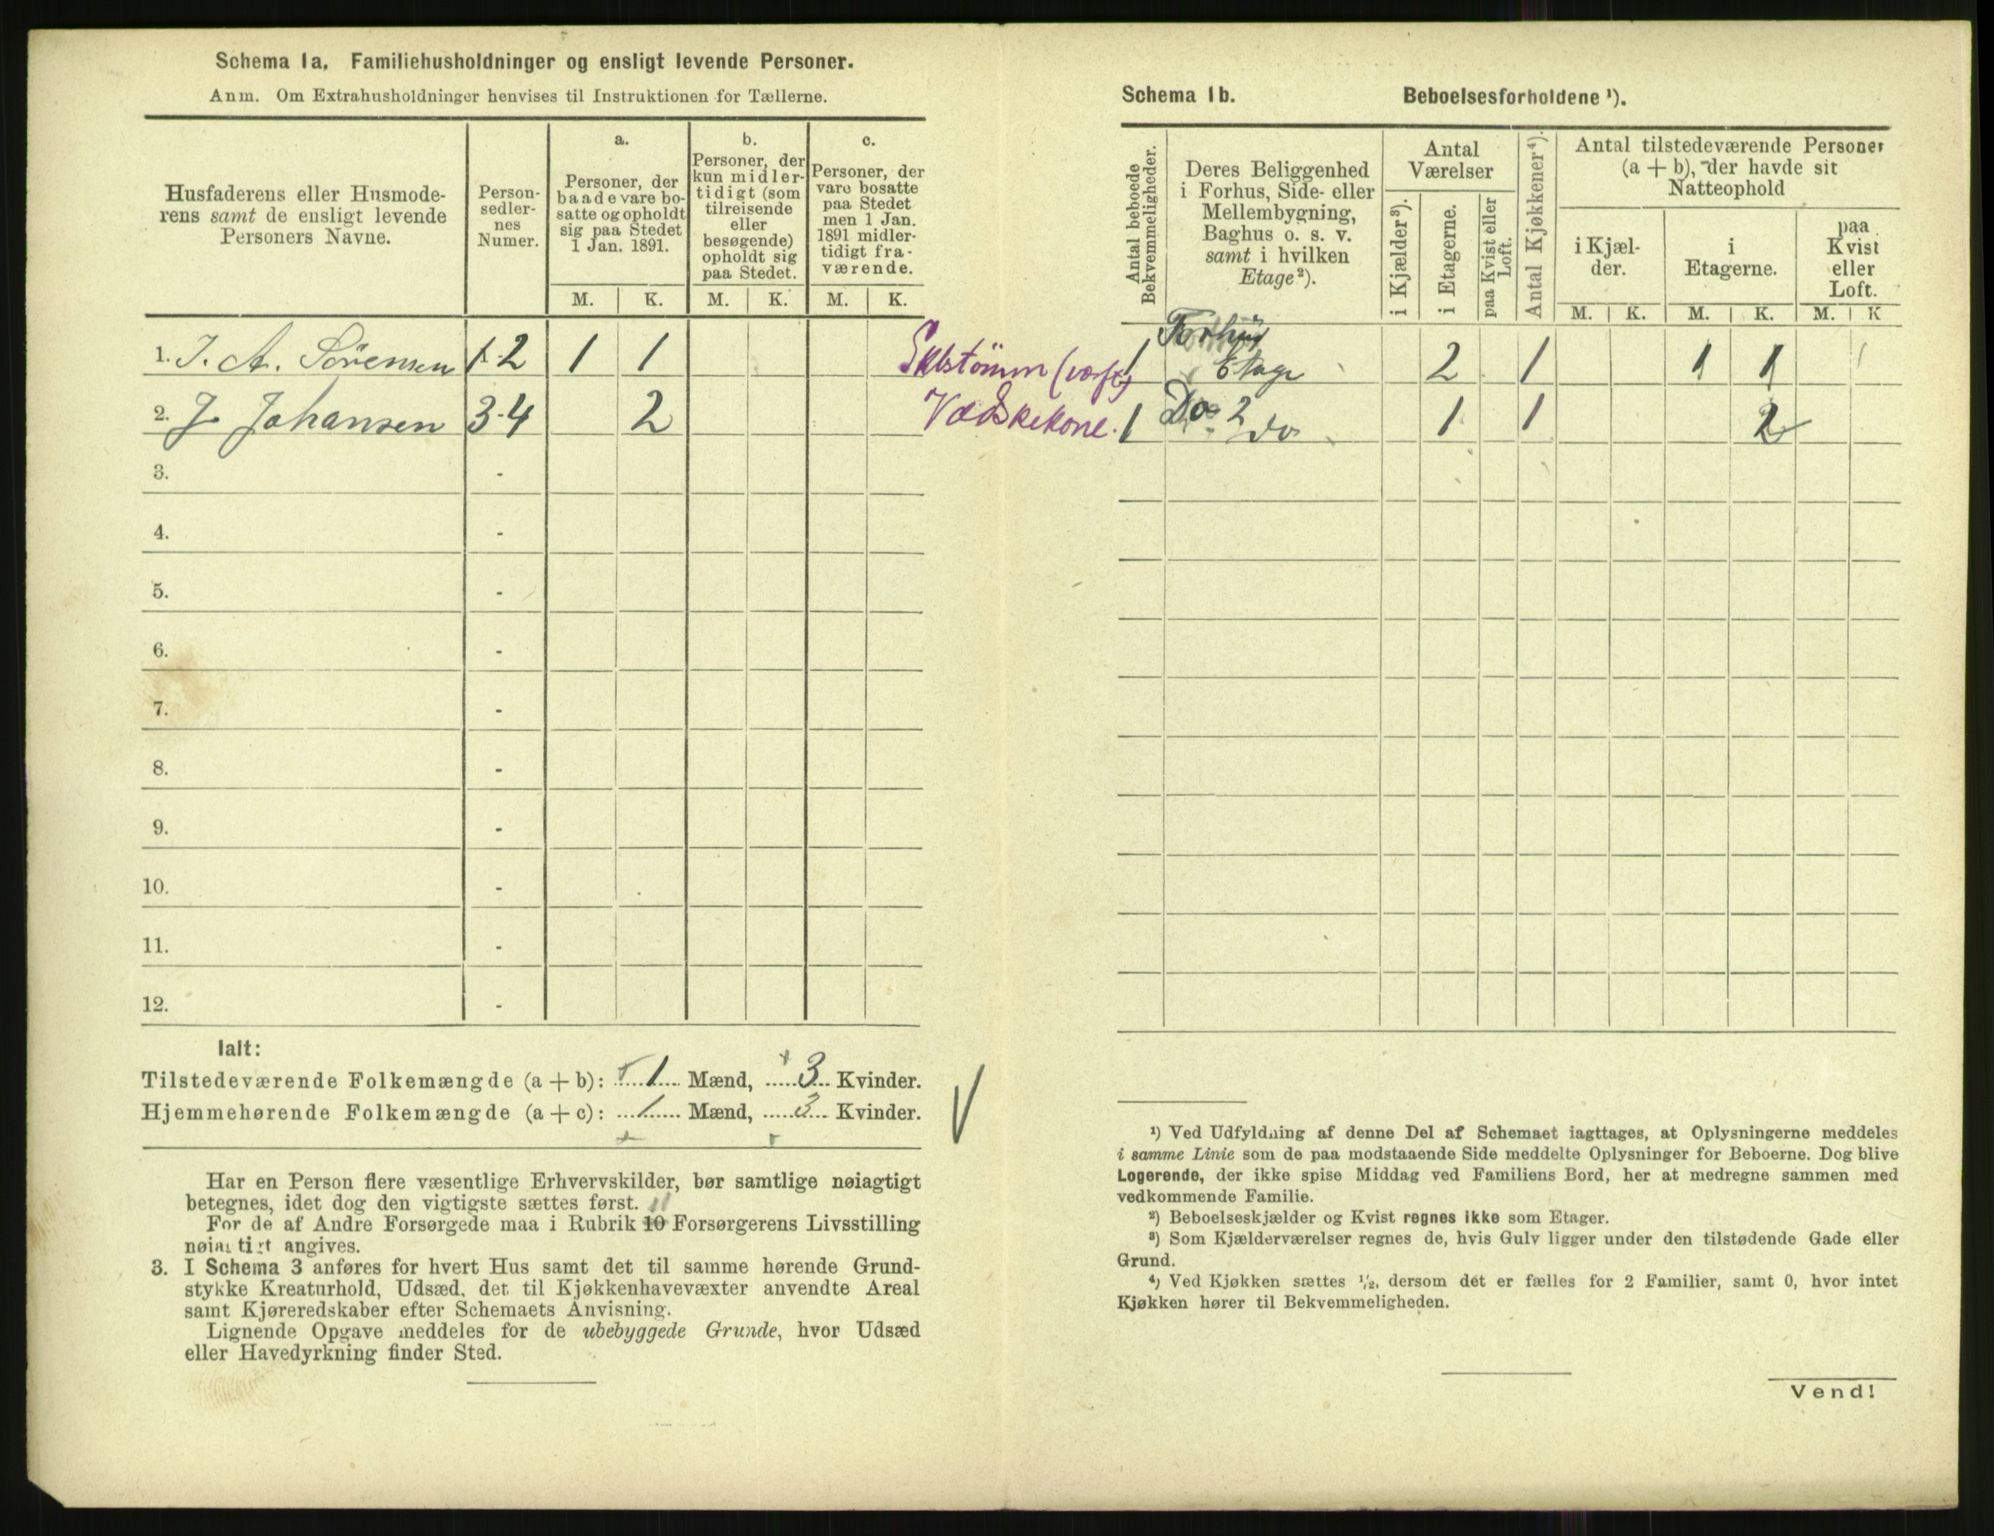 Schema 1a. Familiehusholdninger og ensligt levende Personer.
Anm. Om Extrahusholdninger henvises til Instruktionen for Tællerne.
Husfaderens eller Husmoderens samt de ensligt levende Personers Navne.
Person-sedler-nes Numer.
a. Personer, der baade vare bosatte og opholdt sig paa Stedet 1 Jan. 1891.
b. Personer, der kun midlertidigt (som tilreisende eller besøgende) opholdt sig paa Stedet.
c. Personer, der vare bosatte paa Stedet men 1 Jan. 1891 midlertidigt fraværende.
M. K. M. K. M. K.
1. J. A. Sörensen 1-2 1 1
2. J Johansen 3-4 2
3. -
4. -
5. -
6. -
7. -
8. -
9. -
10. -
11. -
12. -
Ialt:
Tilstedeværende Folkemængde (a + b): 1 Mænd, 3 Kvinder.
Hjemmehørende Folkemængde (a + c): 1 Mænd, 3 Kvinder.
Har en Person flere væsentlige Erhvervskilder, bør samtlige nøiagtigt
betegnes, idet dog den vigtigste sættes først. 11
For de af Andre Forsørgede maa i Rubrik 10 Forsørgerens Livsstilling
nøiagtigt angives.
3. I Schema 3 anføres for hvert Hus samt det til samme hørende Grund-
stykke Kreaturhold, Udsæd, det til Kjøkkenhavevæxter anvendte Areal
samt Kjøreredskaber efter Schemaets Anvisning.
Lignende Opgave meddeles for de ubebyggede Grunde, hvor Udsæd
eller Havedyrkning finder Sted.
Schema 1b. Beboelsesforholdene ¹).
Antal beboede Bekvemmeligheder.
Deres Beliggenhed i Forhus, Side- eller Mellembygning, Baghus o. s. v. samt i hvilken Etage²).
Antal Værelser
i Kjælder³).
i Etagerne.
paa Kvist eller Loft.
Antal Kjøkkener⁴).
Antal tilstedeværende Personer (a + b), der havde sit Natteophold
i Kjælder.
i Etagerne.
paa Kvist eller Loft.
M. K. M. K. M. K
1 Forhus Etage 2 1 1 1
Vædskekone. 1 Do 2 do 1 1 2
¹) Ved Udfyldning af denne Del af Schemaet iagttages, at Oplysningerne meddeles
i samme Linie som de paa modstaaende Side meddelte Oplysninger for Beboerne. Dog blive
Logerende, der ikke spise Middag ved Familiens Bord, her at medregne sammen med
vedkommende Familie.
²) Beboelseskjælder og Kvist regnes ikke som Etager.
³) Som Kjælderværelser regnes de, hvis Gulv ligger under den tilstødende Gade eller
Grund.
⁴) Ved Kjøkken sættes ½, dersom det er fælles for 2 Familier, samt 0, hvor intet
Kjøkken hører til Bekvemmeligheden.
Vend!